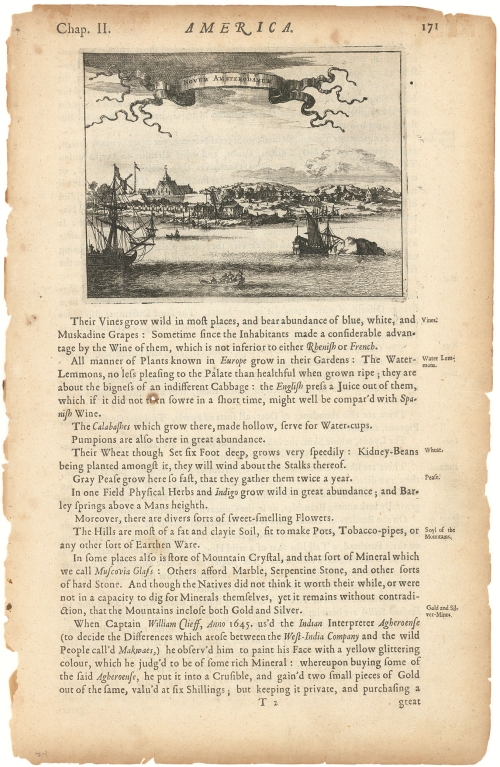 Chap. II. AMERICA. 171
NOVUM AMSTERODAMUM
Their Vines grow wild in moſt places, and bear abundance of blue, white, and Vines.
Muskadine Grapes : Sometime ſince the Inhabitants made a conſiderable advan-
tage by the Wine of them, which is not inferior to either Rheniſh or French.
All manner of Plants known in Europe grow in their Gardens : The Water- Water Lem-
Lemmons, no leſs pleaſing to the Palate than healthful when grown ripe ; they are mons.
about the bigneſs of an indifferent Cabbage : the Engliſh preſs a Juice out of them,
which if it did not ſowre in a ſhort time, might well be compar'd with Spa-
niſh Wine.
The Calabaſhes which grow there, made hollow, ſerve for Water-cups.
Pumpions are alſo there in great abundance.
Their Wheat though Set ſix Foot deep, grows very ſpeedily : Kidney-Beans Wheat.
being planted amongſt it, they will wind about the Stalks thereof.
Gray Peaſe grow here ſo faſt, that they gather them twice a year. Peaſe.
In one Field Phyſical Herbs and Indigo grow wild in great abundance ; and Bar-
ley ſprings above a Mans heighth.
Moreover, there are divers ſorts of ſweet-ſmelling Flowers.
The Hills are moſt of a fat and clayie Soil, fit to make Pots, Tobacco-pipes, or Soyl of the
any other ſort of Earthen Ware. Mountains.
In ſome places alſo is ſtore of Mountain Cryſtal, and that ſort of Mineral which
we call Muſcovia Glaſs : Others afford Marble, Serpentine Stone, and other ſorts
of hard Stone. And though the Natives did not think it worth their while, or were
not in a capacity to dig for Minerals themſelves, yet it remains without contradi-
ction, that the Mountains incloſe both Gold and Silver. Gold and Sil-
ver-Mines.
When Captain William Clieff, Anno 1645. us'd the Indian Interpreter Agheroenſe
(to decide the Differences which aroſe between the Weſt-India Company and the wild
People call'd Makwaes,) he obſerv'd him to paint his Face with a yellow glittering
colour, which he judg'd to be of ſome rich Mineral : whereupon buying ſome of
the ſaid Agheroenſe, he put it into a Cruſible, and gain'd two ſmall pieces of Gold
out of the ſame, valu'd at ſix Shillings ; but keeping it private, and purchaſing a
T 2 great